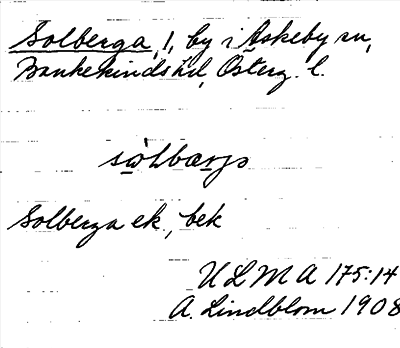 Solberga, 1, by i Askeby sn,
Bankekinds hd, Österg. l.
Solberga ek, bek
ULMA 175:14
A. Lindblom 1908